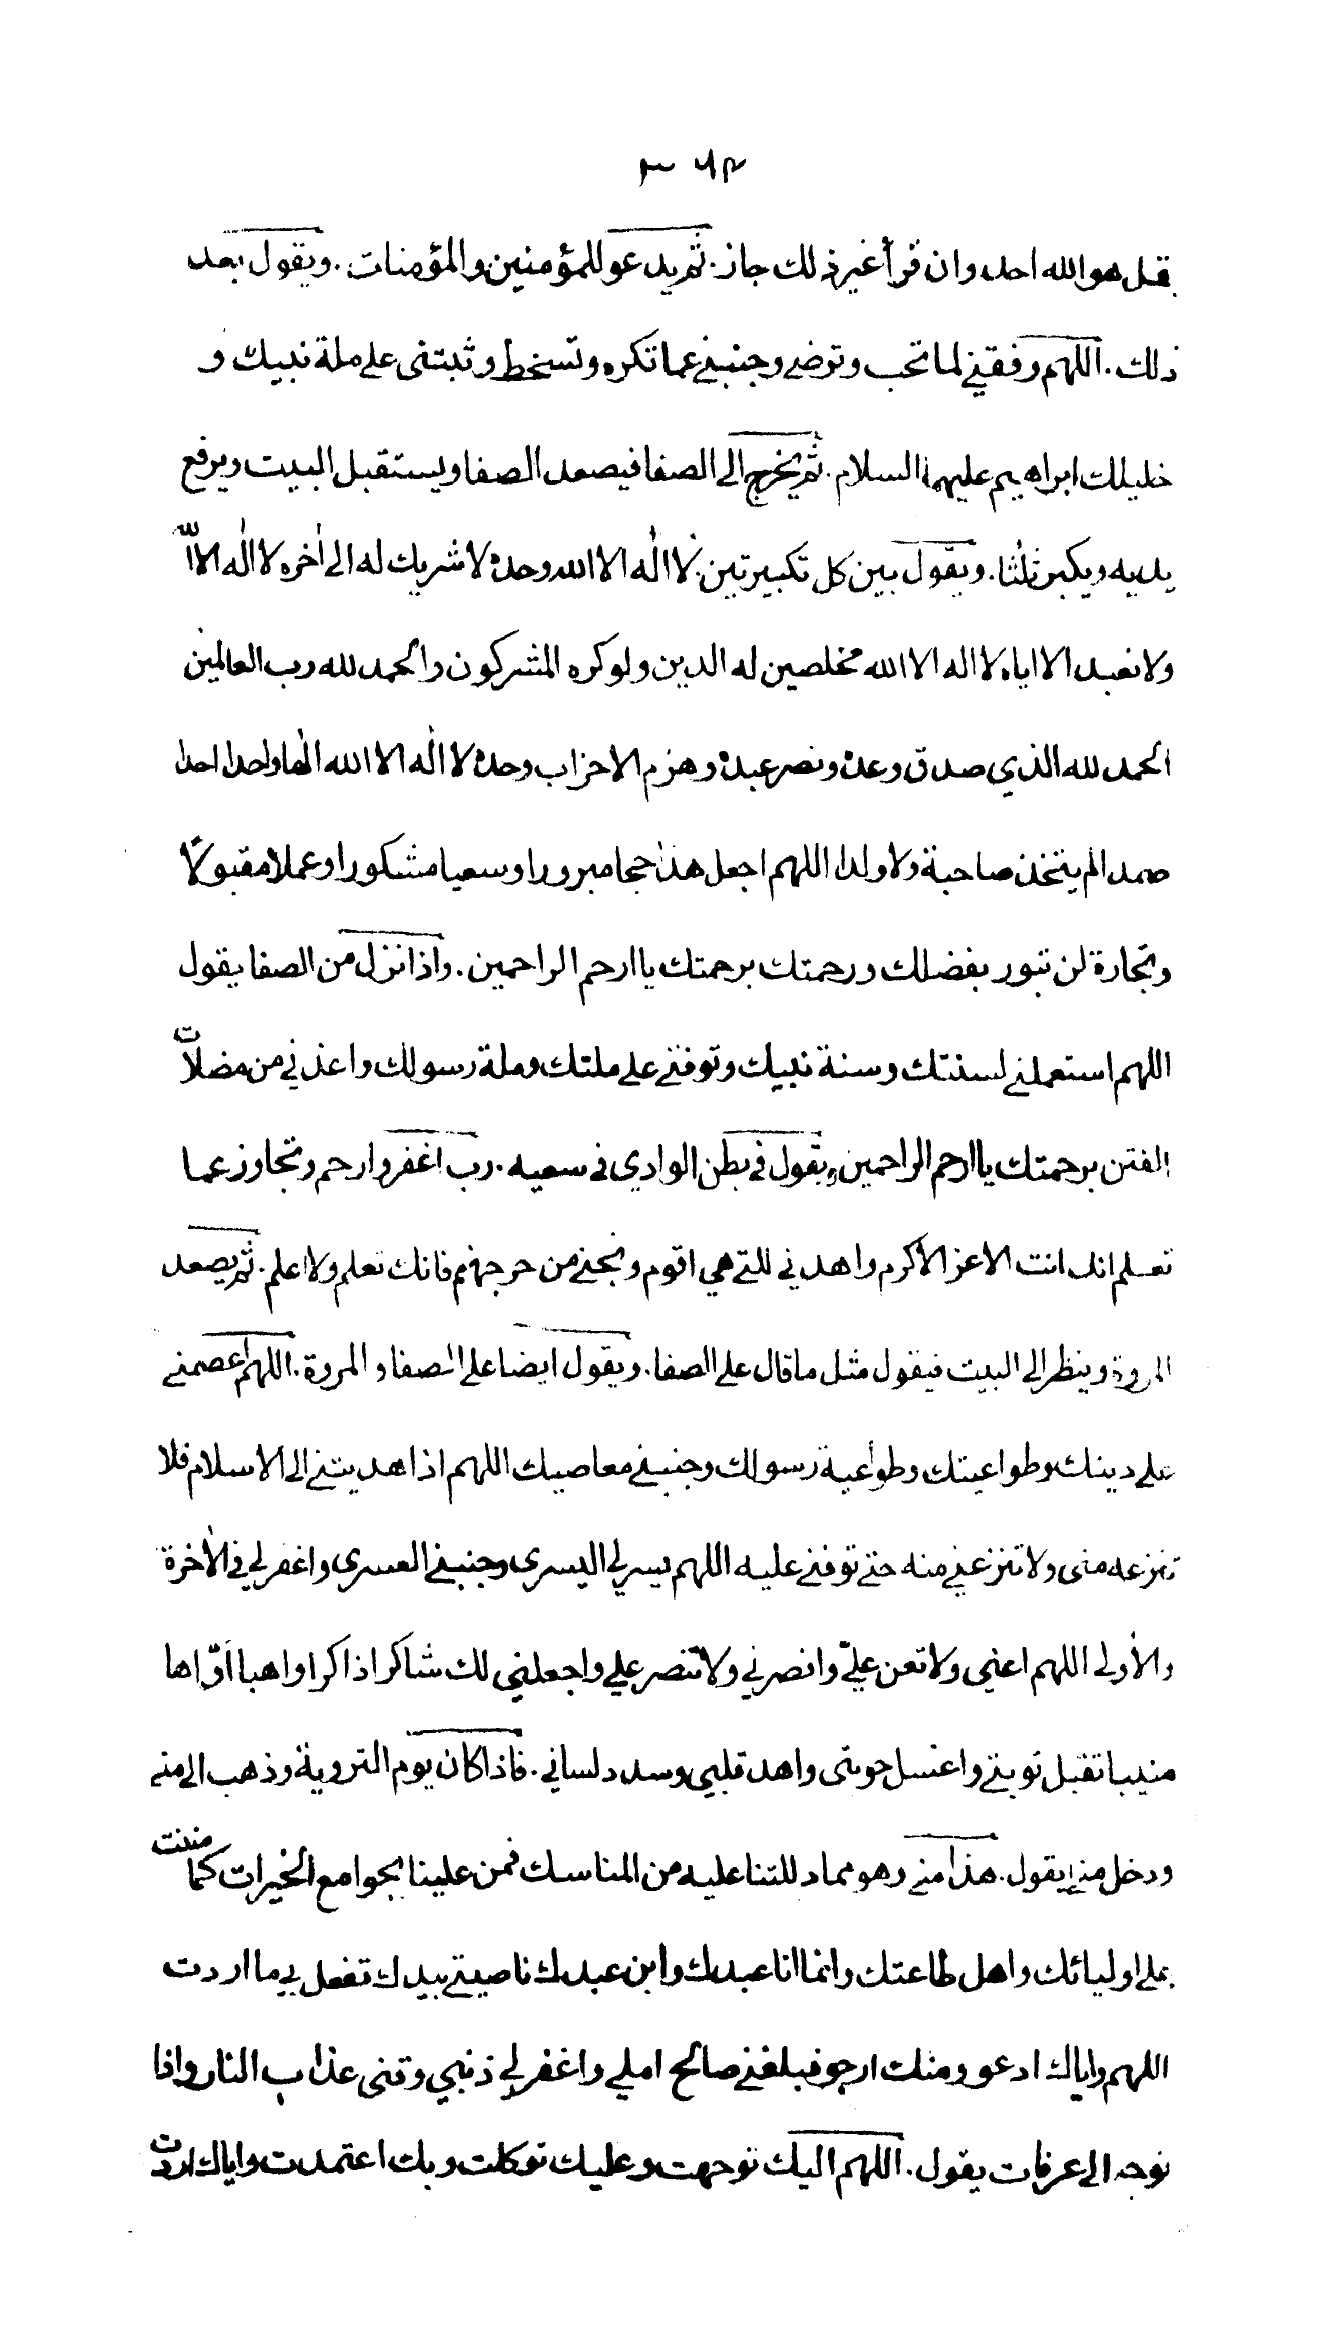 ٣٦٢
قل هو الله احد وان قرأ غير ذلك جاز. ثم يدعو للمؤمنين والمؤمنات. ويقول بعد
ذلك. اللهم وفقني لما تحب وترضى وجنبني عما تكره وتسخط وثبتني على ملة نبيك و
خليلك ابراهيم عليهما السلام. ثم يخرج الى الصفا فيصعد الصفا ويستقبل البيت ويرفع
يديه ويكبر ثلثا. ويقول بين كل تكبيرتين. لا اله الا الله وحده لا شريك له الى اخره لا اله الا الله
ولا نعبد الا اياه لا اله الا الله مخلصين له الدين ولو كره المشركون والحمد لله رب العالمين
الحمد لله الذي صدق وعده ونصر عبده وهزم الاحزاب وحده لا اله الا الله الها واحدا احدا
صمدا لم يتخذ صاحبة ولا ولدا اللهم اجعل هذا حجا مبرورا وسعيا مشكورا وعملا مقبولا
وتجارة لن تبور بفضلك ورحمتك برحمتك يا ارحم الراحمين. واذا نزل من الصفا يقول
اللهم استعملني لسنتك وسنة نبيك وتوفني على ملتك وملة رسولك واعذني من مضلات
الفتن برحمتك يا ارحم الراحمين ويقول في بطن الوادي في سعيه. رب اغفر وارحم وتجاوز عما
تعلم انك انت الاعز الاكرم واهدني للتي هي اقوم ونجني من حر جهنم فانك تعلم ولا اعلم. ثم يصعد
المروة وينظر الى البيت فيقول مثل ما قال على الصفا. ويقول ايضا على الصفا و المروة. اللهم اعصمني
على دينك وطواعيتك وطواعية رسولك وجنبني معاصيك اللهم اذا هديتني الى الاسلام فلا
تنزعه منى ولا تنزعني منه حتى توفني عليه اللهم يسر لي اليسرى وجنبني العسرى واغفر لي في الاخرة
والاولى اللهم اعنى ولا تعن عليّ وانصرني ولا تنصر علي واجعلني لك شاكرا ذاكرا واهبا اوّاها
منيبا تقبل توبتي واغسل حوبتى واهد قلبي وسدد لساني. فاذا كان يوم التروية وذهب الى منى
ودخل منى يقول. هذا منى وهو مما دللتنا عليه من المناسك فمن علينا بجوامع الخيرات كما مننت
على اوليائك واهل طاعتك وانما انا عبدك وابن عبدك ناصيتي بيدك تفعل بي ما اردت
اللهم واياك ادعو ومنك ارجو فبلغني صالح املي واغفر لي ذنبي وقنى عذاب النار واذا
توجه الى عرفات يقول. اللهم اليك توجهت وعليك توكلت وبك اعتمدت واياك اردت